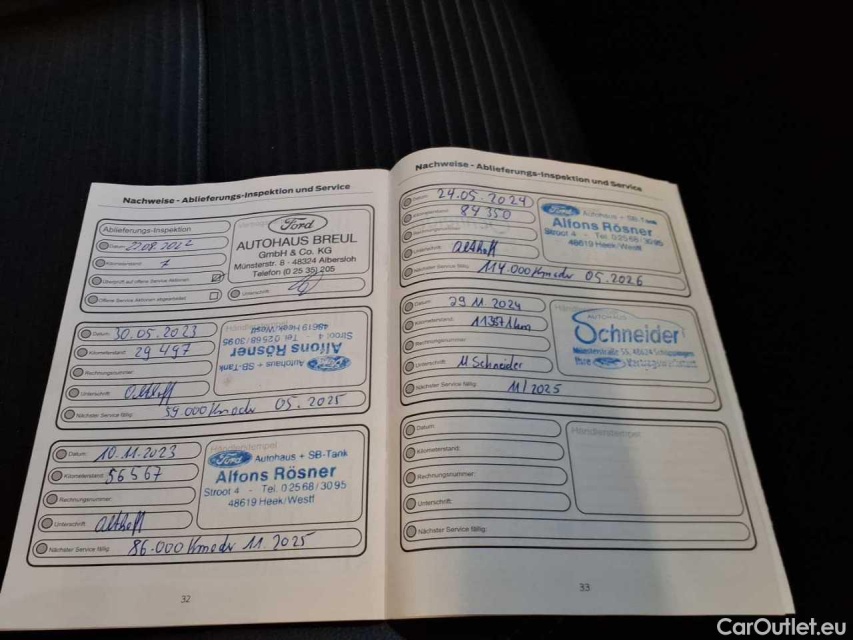 Nachweise - Ablieferungs-Inspektion und Service
Ablieferungs-Inspektion
Datum:
Kilometerstand: 7
Überprüft auf offene Service Aktionen
Offene Service Aktionen abgearbeitet
Ford
AUTOHAUS BREUL
GmbH & Co. KG
Münsterstr. 8 - 48324 Albersloh
Telefon (0 25 35) 205
Unterschrift:
Datum: 30.05.2023
Kilometerstand: 29 497
Rechnungsnummer:
Unterschrift: Althoff
Nächster Service fällig: 59.000 Km odr 05.2025
Ford Autohaus + SB-Tank
Alfons Rösner
Stroot 4 - Tel. 0 25 68 / 30 95
48619 Heek/Westf
Datum: 10.11.2023
Kilometerstand: 56567
Rechnungsnummer:
Unterschrift: Althoff
Nächster Service fällig: 86.000 Km odr 11.2025
Händlerstempel
Ford Autohaus + SB-Tank
Alfons Rösner
Stroot 4 - Tel. 0 25 68 / 30 95
48619 Heek/Westf
32
Nachweise - Ablieferungs-Inspektion und Service
Datum: 24.05.2024
Kilometerstand: 84 350
Rechnungsnummer:
Unterschrift: Althoff
Nächster Service fällig: 114.000 Km odr 05.2026
Ford Autohaus + SB-Tank
Alfons Rösner
Stroot 4 - Tel. 0 25 68 / 30 95
48619 Heek/Westf
Datum: 29.11.2024
Kilometerstand: 113571 km
Rechnungsnummer:
Unterschrift: M Schneider
Nächster Service fällig: 11/2025
AUTOHAUS
Schneider
Ihre Ford
Datum:
Kilometerstand:
Rechnungsnummer:
Unterschrift:
Nächster Service fällig:
Händlerstempel
33
CarOutlet.eu